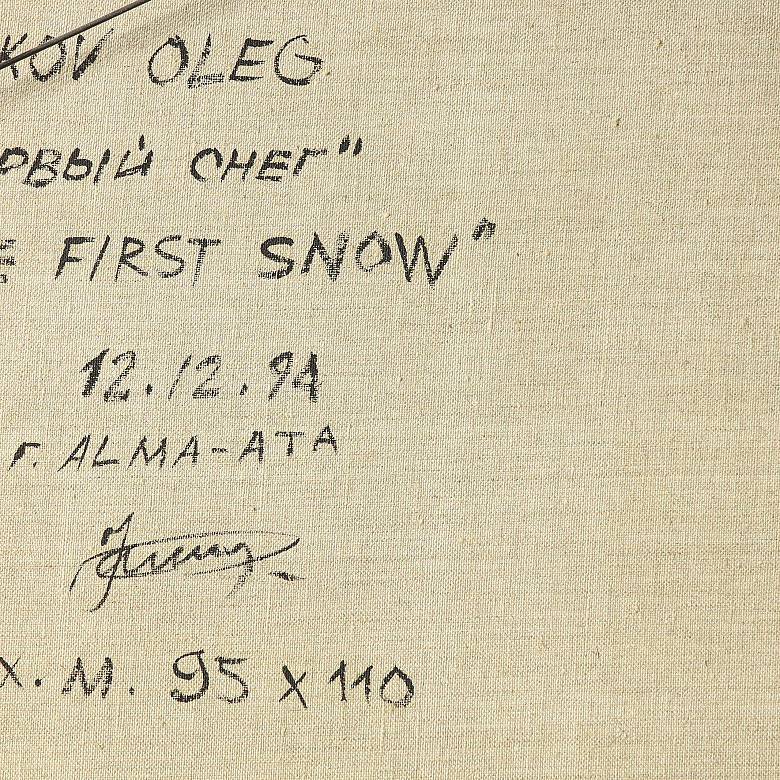 KOV OLEG
РВЫЙ СНЕГ"
E FIRST SNOW"
12.12.94
г. ALMA-ATA
Х. М. 95 x 110